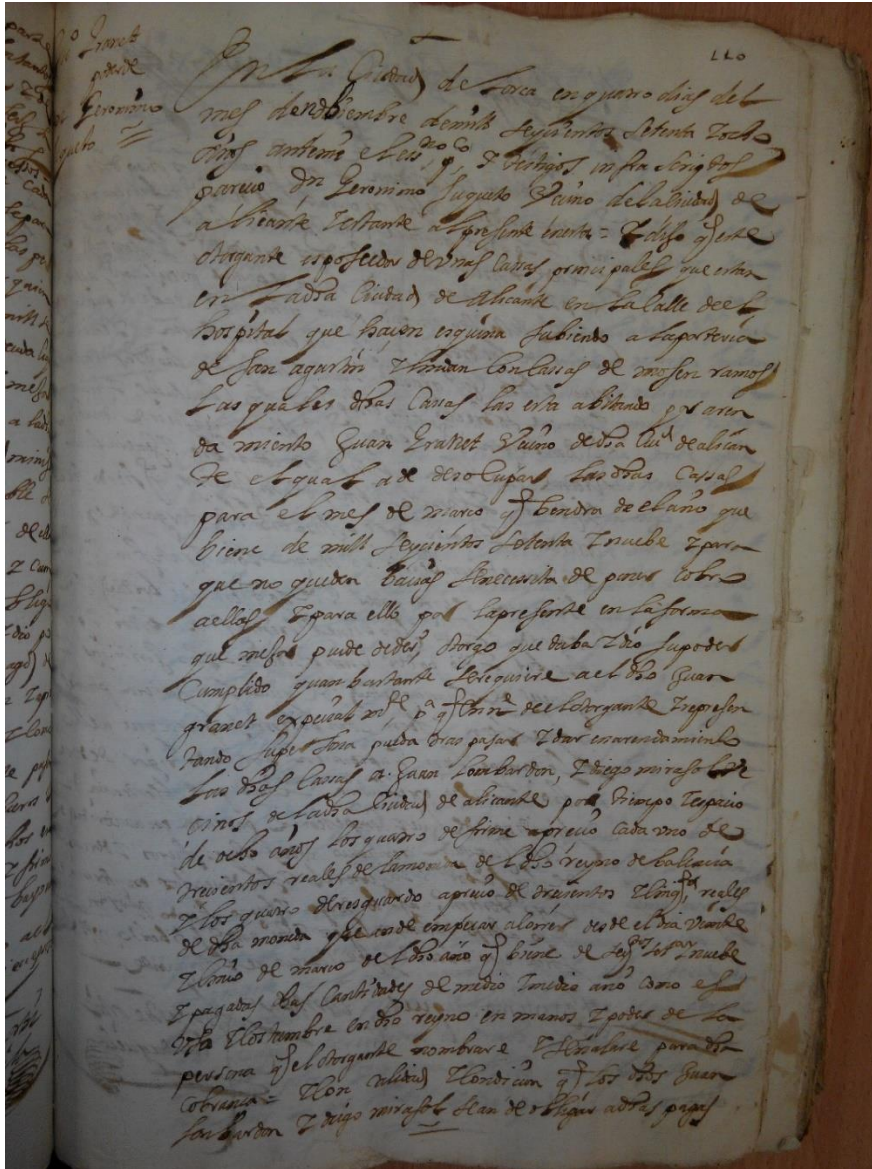 110
Juº Granet
poder
Geronimo
En la Ciudad de Lorca en quatro dias del
mes de nobiembre de mill seyscientos setenta y ocho
años ante mi el essno pco, y testigos infra scriptos
parecio Dn Geronimo Vecino de la ciudad de
alicante y estante al presente en esta = y dijo q este
otorgante es poseedor de unas Cassas principales que estan
en la dha Ciudad de Alicante en la Calle de el
hospital que hacen esquina subiendo a la porteria
de san agustin y lindan con cassas de mosen ramos
las quales dhas Cassas las esta abitando por aren
da miento Juan Granet Vecino de dha Ciud de alican
te el qual a de desocupar las dhas Cassas
para el mes de março q bendra de el año que
biene de mill seyscientos setenta y nuebe y para
que no queden bacias se necessita de poner cobro
a ellas y para ello por la presente en la forma
que mejor puede y de dro, otorgo que daba y dio su poder
Cumplido quan bastante se requiere a el dho Juan
granet expecial mte, pa q en ne de el otorgante y represen
tando su persona pueda tras pasar y dar en arendamiento
las dhas Cassas a Juan Lombardon, y diego mirasol Ve
cinos de la dha Ciudad de alicante por tiempo y espacio
de ocho años los quatro de firme a precio cada uno de
trecientos reales de la moneda de el dho reyno de balencia
y los quatro de resguardo a precio de trecientos y cinqta reales
de dha moneda que an de empeçar a correr desde el dia veinte
y cinco de março de el dho año q biene de seysos setta y nuebe
y pagadas dhas Cantidades de medio en medio año como es
y costumbre en dho reyno en manos y poder de la
persona q el otorgante nombrare y señalare para dha
Cobrança = y con calidad y condicion q los dhos Juan
Lombardon y diego mirasol se an de obligar a dhas pagas